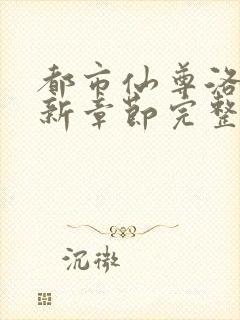 都市仙尊洛
新章节完整
沉微